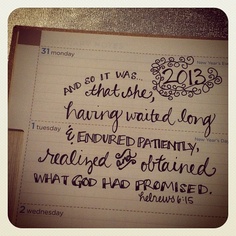 31 monday
New Year's Eve
AND SO IT WAS...
2013
that she,
having waited long
New Year's Day
1 tuesday
& ENDURED PATIENTLY,
realized & obtained
WHAT GOD HAD PROMISED.
hebrews 6:15
2 wednesday